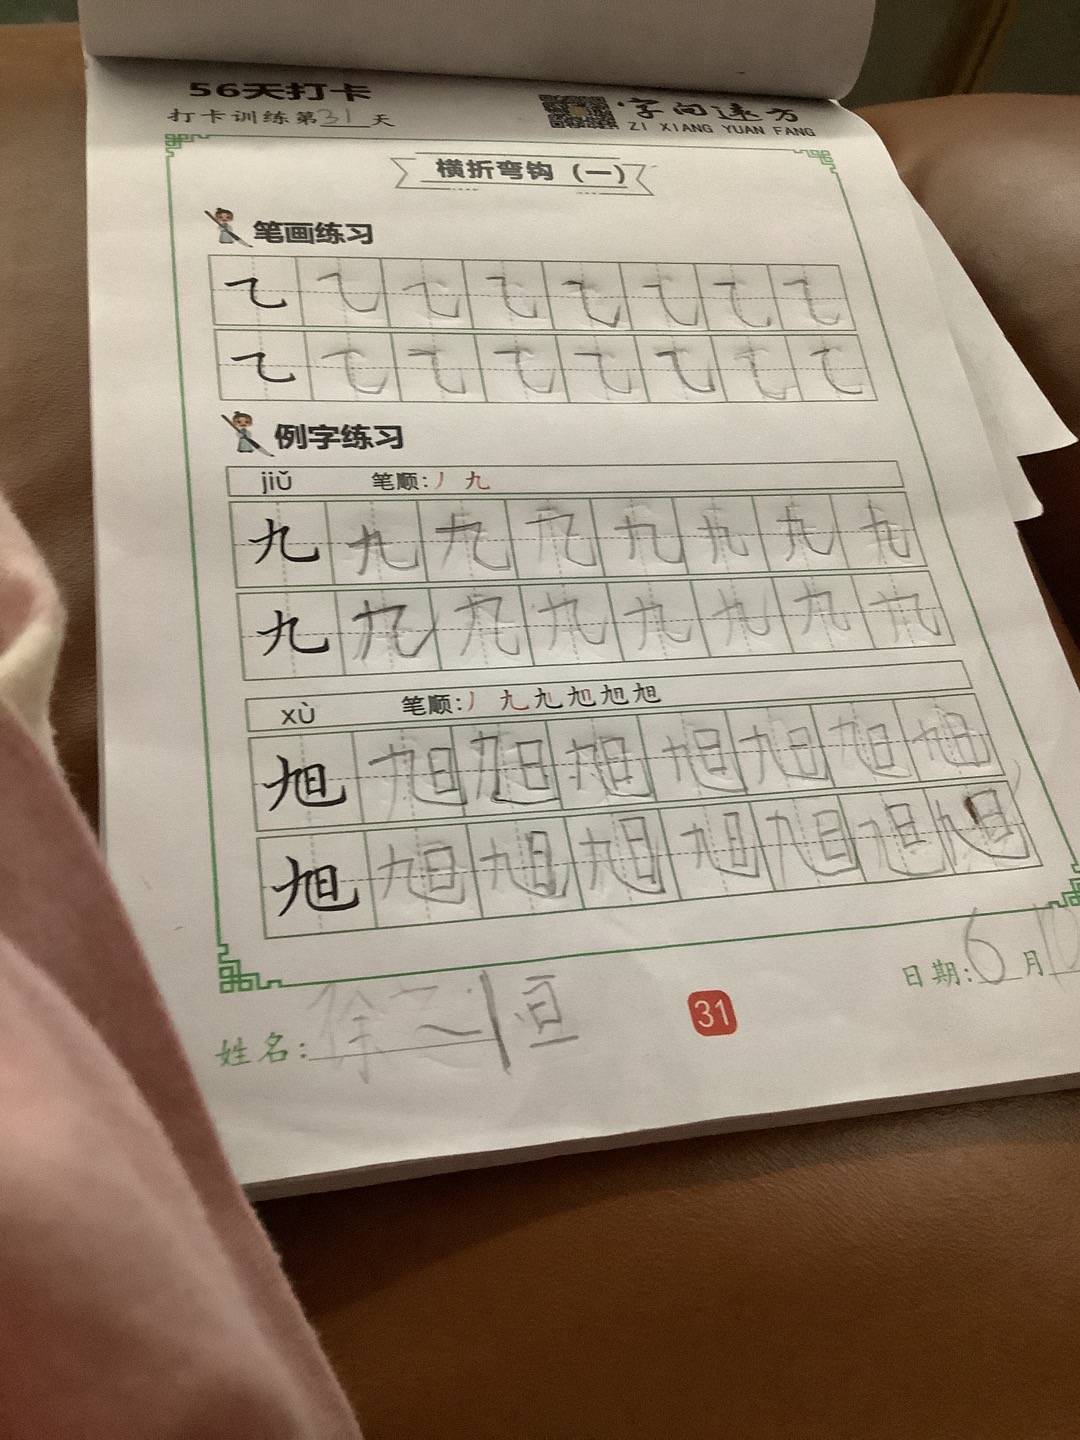 56天打卡
打卡训练第31天
字向远方
ZI XIANG YUAN FANG
横折弯钩（一）
笔画练习
㇈ ㇈ ㇈ ㇈ ㇈ ㇈ ㇈ ㇈
㇈ ㇈ ㇈ ㇈ ㇈ ㇈ ㇈ ㇈
例字练习
jiǔ 笔顺:丿 九
九 九 九 九 九 九 九 九
九 九 九 九 九 九 九 九
xù 笔顺:丿 九 九 旭 旭 旭
旭 旭 旭 旭 旭 旭 旭 旭
旭 旭 旭 旭 旭 旭 旭 旭
日期:6月10
姓名:徐
31